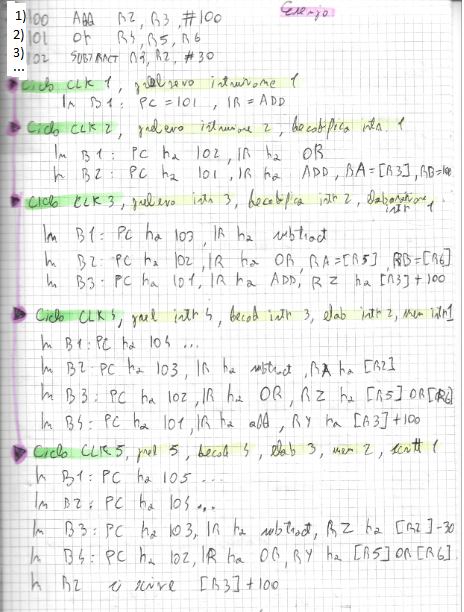 Esempio
1) 100 Add R2, R3, #100
2) 101 Or R4, R5, R6
3) 102 SUBTRACT R9, R2, #30
...
Ciclo CLK 1, prelievo istruzione 1
In B1: PC = 101, IR = ADD
Ciclo CLK2, prelievo istruzione 2, decodifica istr. 1
In B1: PC ha 102, IR ha OR
In B2: PC ha 101, IR ha ADD, RA=[R3], RB=100
Ciclo CLK 3, prelievo istr 3, decodifica istr 2, elaborazione istr 1
In B1: PC ha 103, IR ha subtract
In B2: PC ha 102, IR ha OR, RA=[R5], RB=[R6]
In B3: PC ha 101, IR ha ADD, RZ ha [R3]+100
Ciclo CLK4, prel istr 4, decod istr 3, elab istr 2, mem istr1
In B1: PC ha 104 ...
In B2: PC ha 103, IR ha subtract, RA ha [R2]
In B3: PC ha 102, IR ha OR, RZ ha [R5] OR [R6]
In B4: PC ha 101, IR ha add, RY ha [R3]+100
Ciclo CLK5, prel 5, decod 4, elab 3, mem 2, scritt 1
In B1: PC ha 105 ...
In B2: PC ha 104 ...
In B3: PC ha 103, IR ha subtract, RZ ha [R2]-30
In B4: PC ha 102, IR ha OR, RY ha [R5] OR [R6]
In R2 si scrive [R3]+100